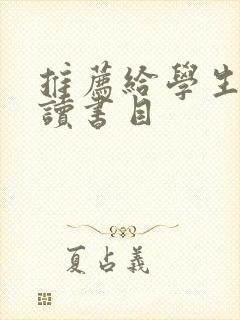 推薦給學生
讀書目
夏占義